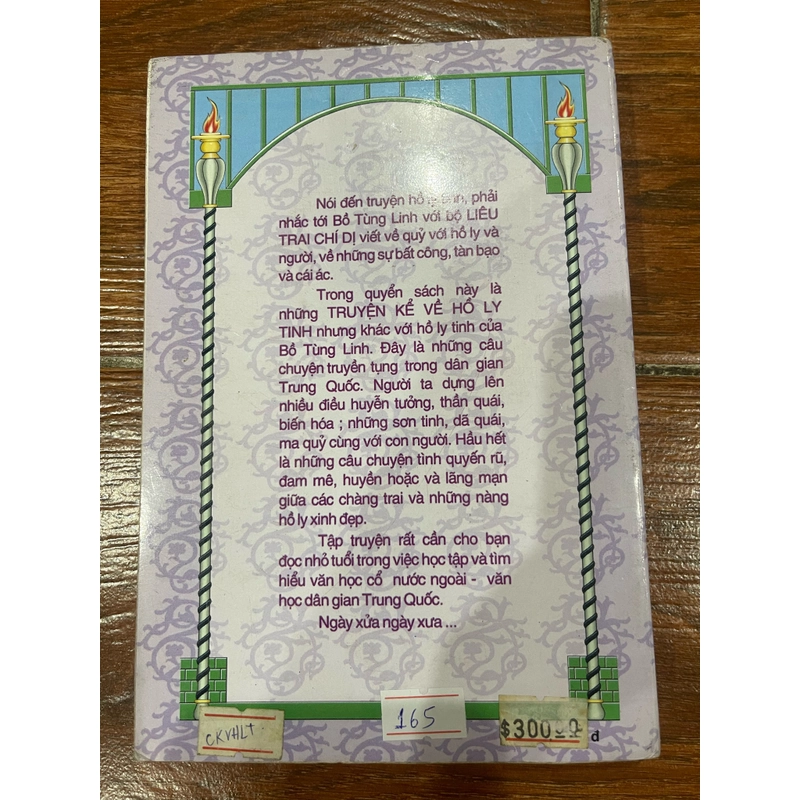 Nói đến truyện hồ ly tinh, phải
nhắc tới Bồ Tùng Linh với bộ LIÊU
TRAI CHÍ DỊ viết về quỷ với hồ ly và
người, về những sự bất công, tàn bạo
và cái ác.
Trong quyển sách này là
những TRUYỆN KỂ VỀ HỒ LY
TINH nhưng khác với hồ ly tinh của
Bồ Tùng Linh. Đây là những câu
chuyện truyền tụng trong dân gian
Trung Quốc. Người ta dựng lên
nhiều điều huyễn tưởng, thần quái,
biến hóa ; những sơn tinh, dã quái,
ma quỷ cùng với con người. Hầu hết
là những câu chuyện tình quyến rũ,
đam mê, huyền hoặc và lãng mạn
giữa các chàng trai và những nàng
hồ ly xinh đẹp.
Tập truyện rất cần cho bạn
đọc nhỏ tuổi trong việc học tập và tìm
hiểu văn học cổ nước ngoài - văn
học dân gian Trung Quốc.
Ngày xửa ngày xưa ...
CKVHLT
165
$300
đ